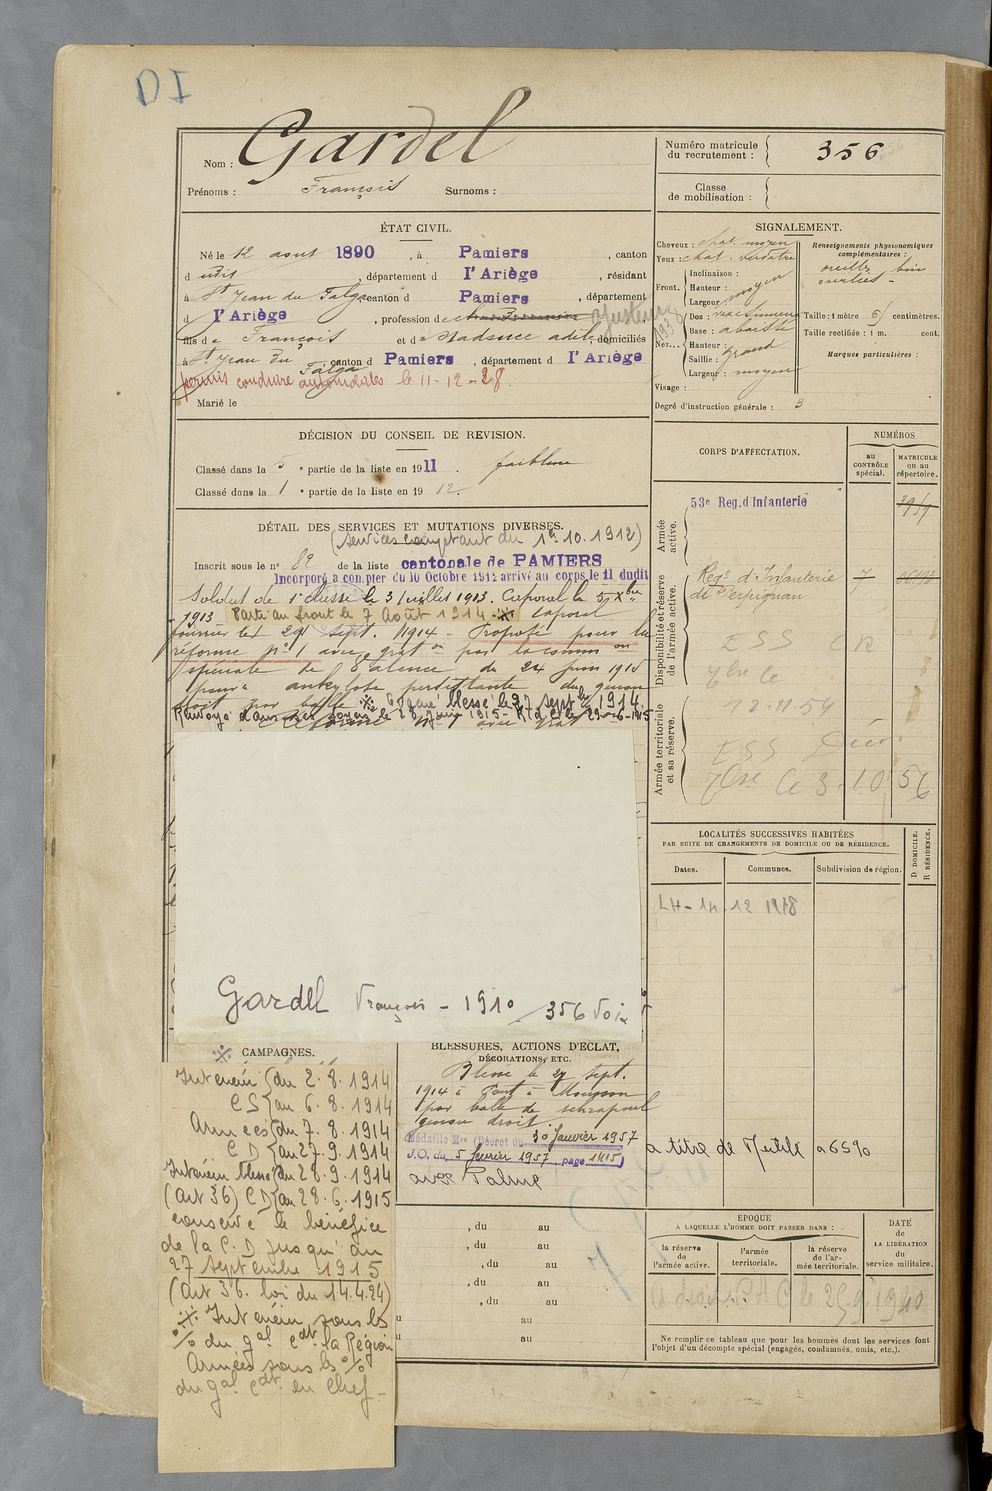 DI
Nom : Gardel
Prénoms : François Surnoms :
Numéro matricule
du recrutement : 356
Classe
de mobilisation :
ÉTAT CIVIL.
Né le 12 aout 1890, à Pamiers, canton
d udit, département d l'Ariège, résidant
à St Jean du Falga canton d Pamiers, département
d l'Ariège, profession de
fils de François et de domiciliés
à St Jean du Falga canton d Pamiers, département d l'Ariège
permis conduire automobiles le 11-12-28.
Marié le
SIGNALEMENT.
Cheveux : chat. moyen
Yeux : chat. verdatre
Front. Inclinaison :
Hauteur : moyen
Largeur :
Nez. Dos :
Base :
Hauteur :
Saillie : grand
Largeur : moyen
Visage :
Degré d'instruction générale : 3
Renseignements physionomiques
complémentaires :
oreilles bien
ourlées -
Taille : 1 mètre 61 centimètres.
Taille rectifiée : 1 m. cent.
Marques particulières :
DÉCISION DU CONSEIL DE REVISION.
Classé dans la 5 e partie de la liste en 1911. faiblesse
Classé dans la 1 e partie de la liste en 1912.
DÉTAIL DES SERVICES ET MUTATIONS DIVERSES.
(services comptant du 1er 10. 1912)
Inscrit sous le n° 82 de la liste cantonale de PAMIERS
Incorporé à compter du 10 Octobre 1912 arrivé au corps le 11 dudit
Soldat de 1e Classe le 3 Juillet 1913. Caporal le 5 Xbre
1913. Parti au front le 7 Août 1914. ※ Caporal
fourrier le 29 Sept. 1914 - Proposé pour la
réforme N° 1 avec grat on par la comm on
spéciale de Valence du 24 juin 1915
pour ankylose du genou
droit par balle ※ blessé le 27 sept 1914.
Renvoyé dans ses foyers le 28 Juin 1915-
Gardel François - 1910 / 356 Voir
CORPS D'AFFECTATION.
NUMÉROS
au
CONTRÔLE
spécial.
MATRICULE
ou au
répertoire.
Armée
active.
53e Reg. d'Infanterie
Disponibilité et réserve
de l'armée active.
Regt d'Infanterie
de Perpignan
ESS CR
12.11.54
Armée territoriale
et sa réserve.
ESS
10 56
LOCALITÉS SUCCESSIVES HABITÉES
PAR SUITE DE CHANGEMENTS DE DOMICILE OU DE RÉSIDENCE.
Dates. Communes. Subdivision de région.
D DOMICILE.
R RÉSIDENCE.
※ CAMPAGNES.
Intérieur du 2.8.1914
CS au 6.8.1914
Armées du 7.8.1914
CD au 27.9.1914
Intérieur blessé du 28.9.1914
(Art 36) CD au 28.6.1915
conserve le bénéfice
de la C.D jusqu'au
27 septembre 1915
(Art 36. loi du 14.4.24)
※ Intérieur sous les
% du gal cdt la Région
Armées sous les %
du gal cdt en chef -
BLESSURES, ACTIONS D'ÉCLAT,
DÉCORATIONS, ETC.
Blessé le 27 sept.
1914 à Pont à Mousson
par balle de schrapnel
genou droit.
Médaille Mre (Décret du 30 Janvier 1957
J.O. du 5 février 1957 page 1415)
a titre de Mutilé a 65%
avec Palme
, du au
, du au
, du au
, du au
, du au
au
au
EPOQUE
A LAQUELLE L'HOMME DOIT PASSER DANS :
la réserve
de
l'armée active.
l'armée
territoriale.
la réserve
de l'ar-
mée territoriale.
DATE
de
LA LIBÉRATION
du
service militaire.
Ne remplir ce tableau que pour les hommes dont les services font
l'objet d'un décompte spécial (engagés, condamnés, omis, etc.).